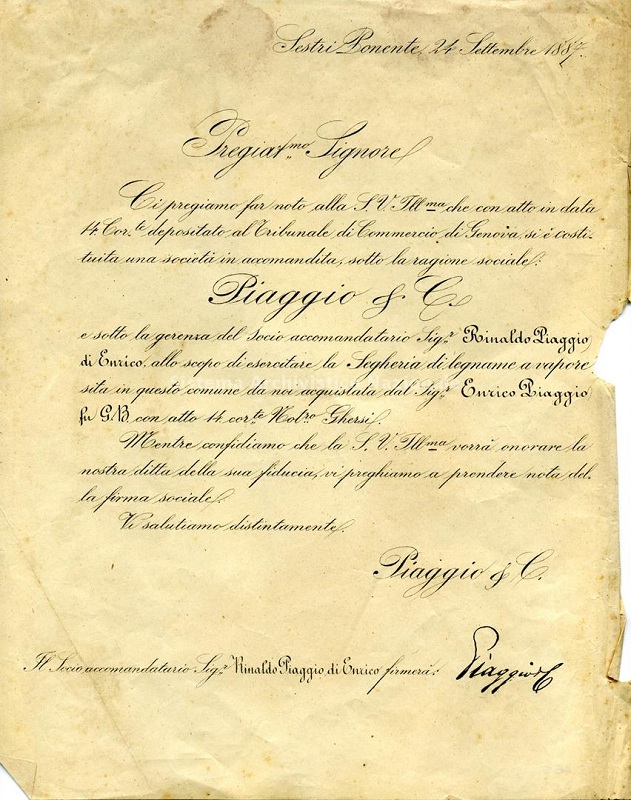 Sestri Ponente, 24 Settembre 1887.
Pregiat.mo Signore
Ci pregiamo far noto alla S. V. Ill.ma che con atto in data
14 Cor.te depositato al Tribunale di Commercio di Genova, si è costi-
tuita una società in accomandita, sotto la ragione sociale:
Piaggio & C.
e sotto la gerenza del Socio accomandatario Sig.r Rinaldo Piaggio
di Enrico, allo scopo di esercitare la Segheria di legname a vapore
sita in questo comune da noi acquistata dal Sig.r Enrico Piaggio
fu G.B. con atto 14 cor.te Not.ro Ghersi.
Mentre confidiamo che la S. V. Ill.ma vorrà onorare la
nostra ditta della sua fiducia, vi preghiamo a prendere nota del-
la firma sociale.
Vi salutiamo distintamente.
Piaggio & C.
Il Socio accomandatario Sig.r Rinaldo Piaggio di Enrico firmerà:
Piaggio & C